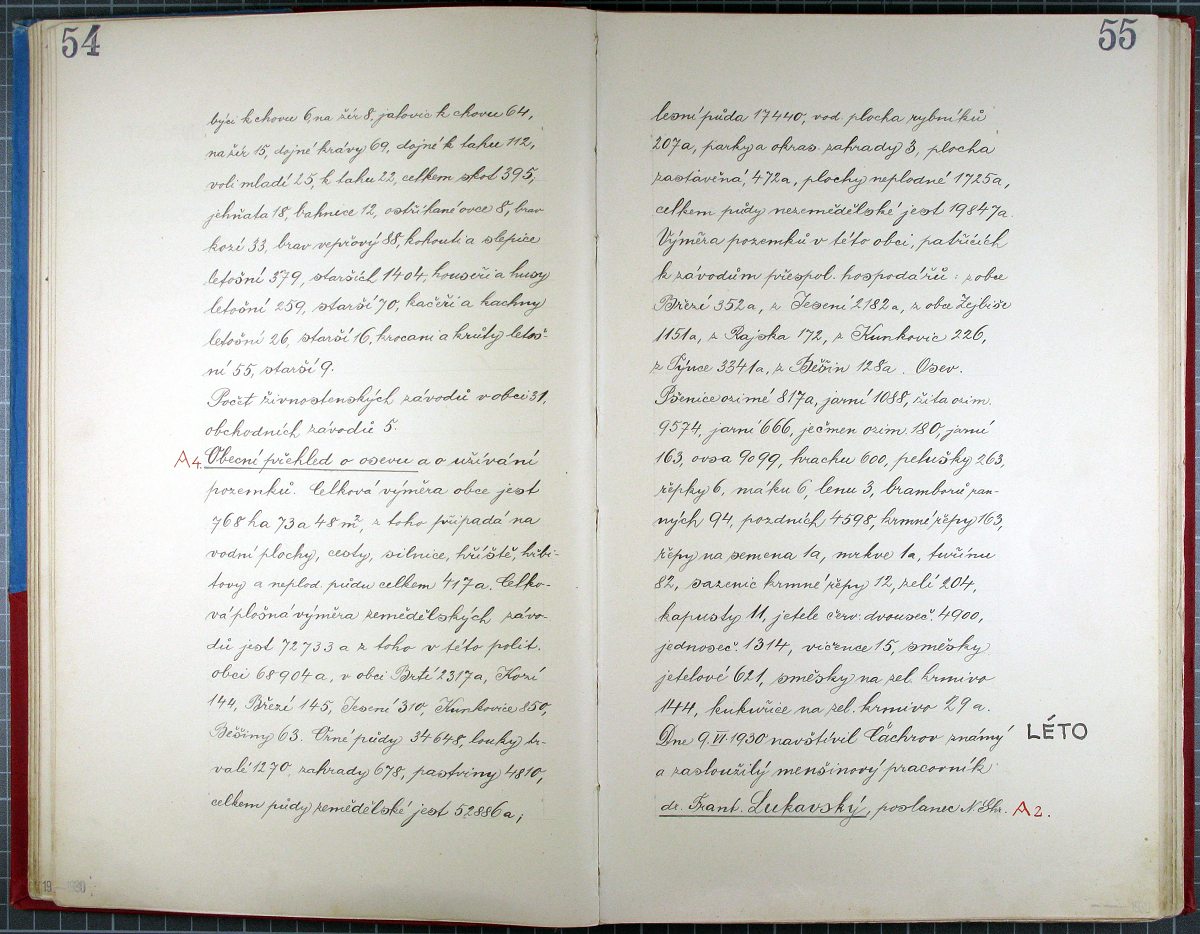 54
býci k chovu 6, na žír 8, jalovic k chovu 64,
na žír 15, dojné krávy 69, dojné k tahu 112,
voli mladí 25, k tahu 22, celkem skot 395,
jehňata 18, bahnice 12, ostříhané ovce 8, brav
kozí 33, brav vepřový 88, kohouti a slepice
letošní 379, starších 1404, houseři a husy
letošní 259, starší 70, kačeři a kachny
letošní 26, starší 16, krocani a krůty letoš-
ní 55, starší 9.
Počet živnostenských závodů v obci 31,
obchodních závodů 5.
A4. Obecní přehled o osevu a o užívání
pozemků. Celková výměra obce jest
768 ha 73 a 48 m², z toho připadá na
vodní plochy, cesty, silnice, hřiště, hřbi-
tovy a neplod. půdu celkem 417 a. Celko-
vá plošná výměra zemědělských závo-
dů jest 72733 a z toho v této polit.
obci 68904 a, v obci Brtí 2317 a, Kozí
144, Březí 145, Jesení 310, Kunkovice 850,
Běšiny 63. Orné půdy 34648, louky tr-
valé 1270, zahrady 678, pastviny 4810,
celkem půdy zemědělské jest 52886 a;
19 1930
55
lesní půda 17440, vod. plocha rybníků
207 a, parky a okras. zahrady 3, plocha
zastavěná 472 a, plochy neplodné 1725 a,
celkem půdy nezemědělské jest 19847 a.
Výměra pozemků v této obci, patřících
k závodům přespol. hospodářů: z obce
Březí 352 a, z Jesení 2182 a, z obce Žejbiše
1151 a, z Rajska 172, z Kunkovic 226,
z Týnce 3341 a, z Běšin 128 a. Osev.
Pšenice ozimé 817 a, jarní 1088, žita ozim.
9574, jarní 666, ječmen ozim. 180, jarní
163, ovsa 9099, hrachu 600, pelušky 263,
řepky 6, máku 6, lenu 3, bramborů ran-
ných 94, pozdních 4598, krmné řepy 163,
řepy na semena 1 a, mrkve 1 a, tuřínu
82, sazenic krmné řepy 12, zelí 204,
kapusty 11, jetele červ. dvouseč. 4900,
jednoseč. 1314, vičence 15, směsky
jetelové 621, směsky na zel. krmivo
144, kukuřice na zel. krmivo 29 a.
Dne 9. VI. 1930 navštívil Čachrov známý LÉTO
a zasloužilý menšinový pracovník
dr. Frant. Lukavský, poslanec N. Shr. A2.